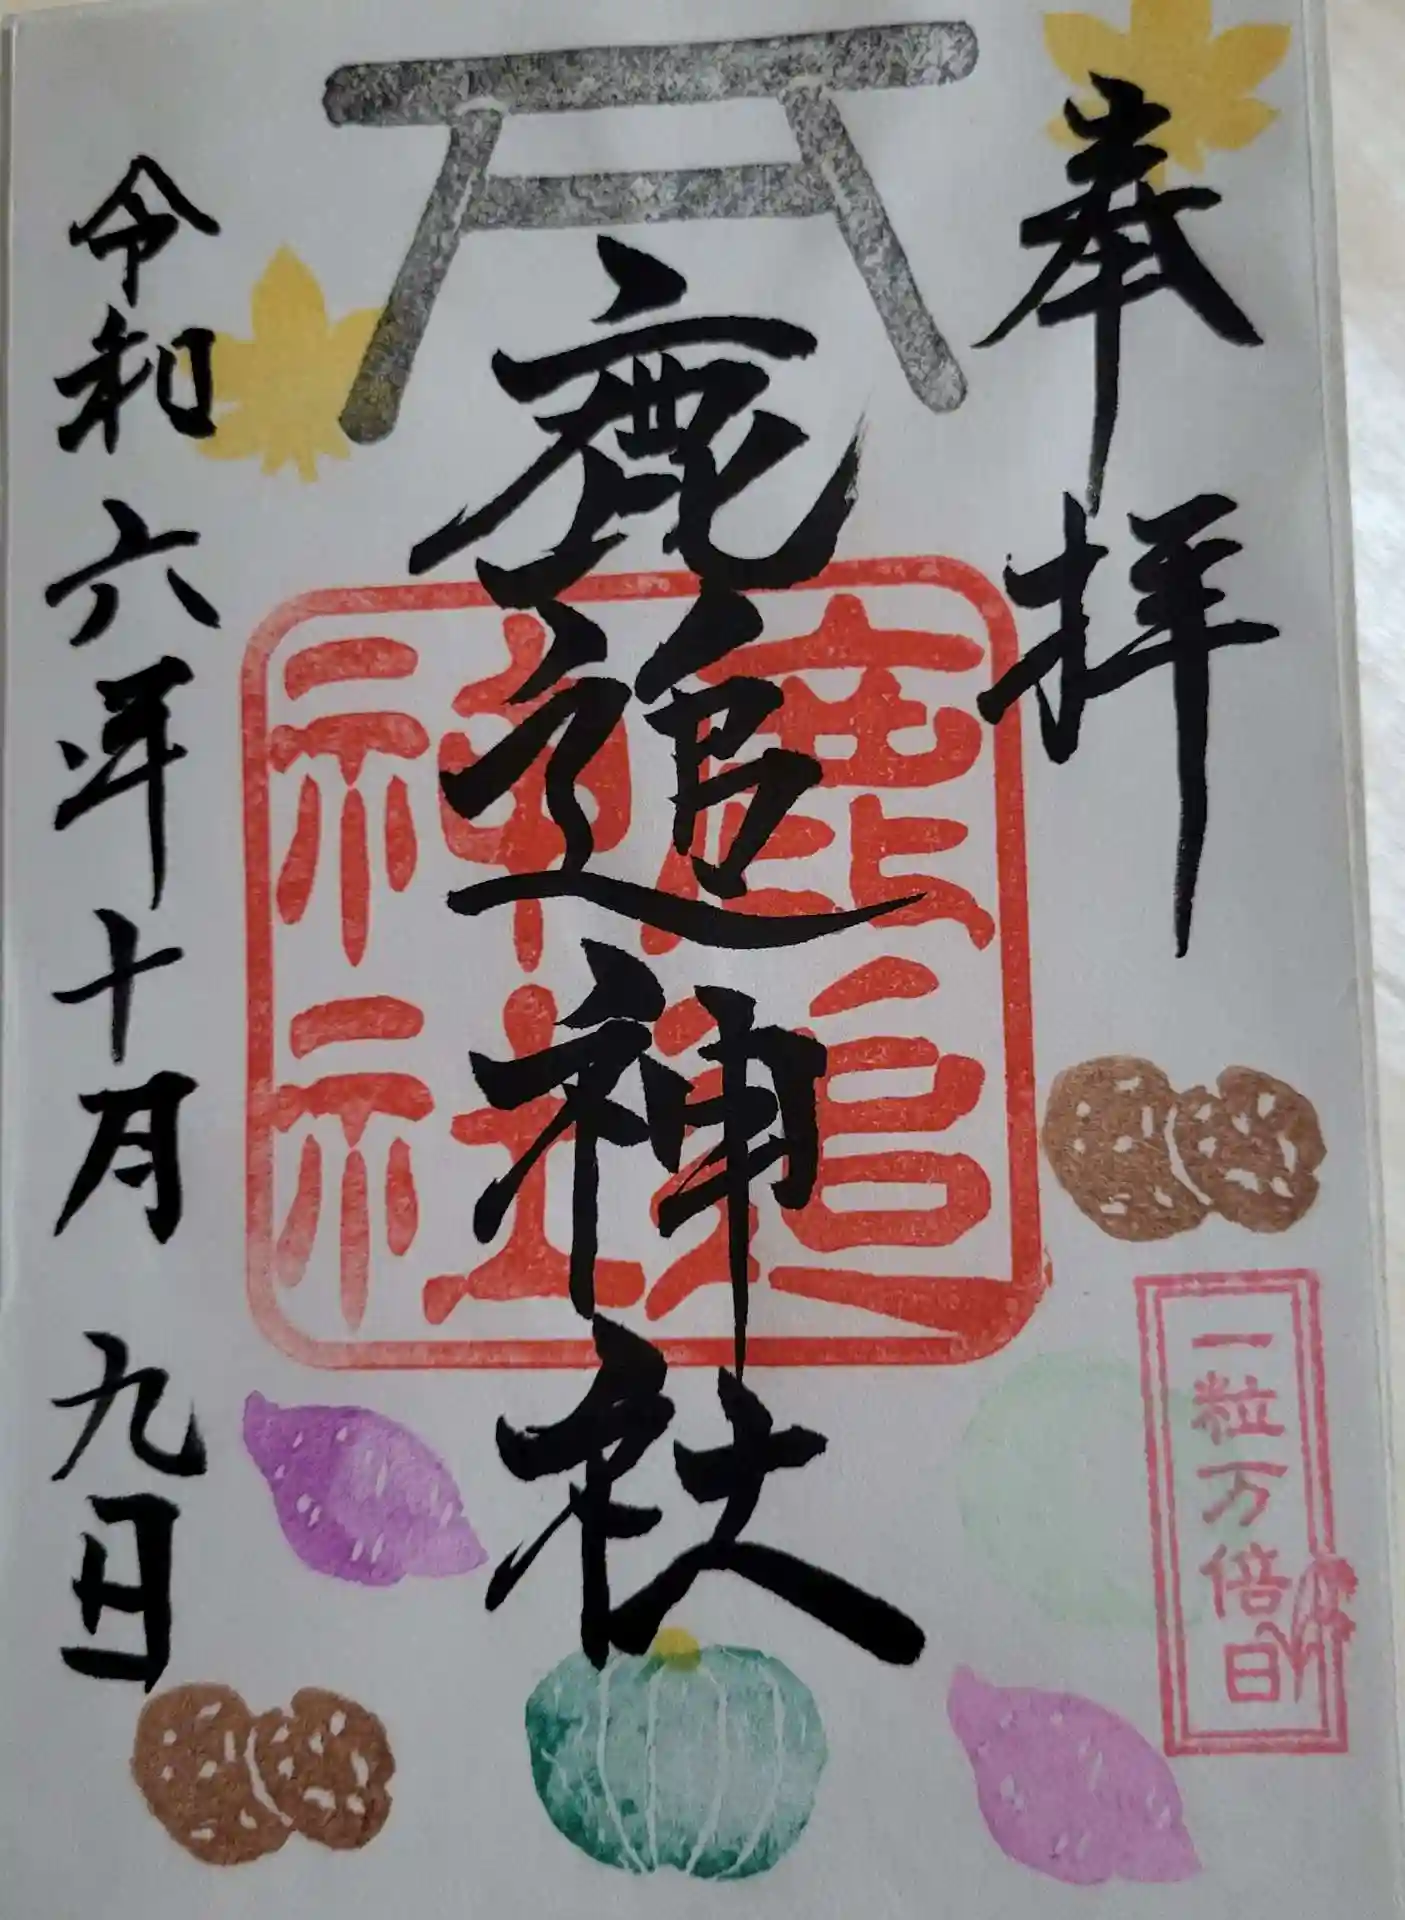 奉拝
鹿追神社
鹿追
神社
一粒万倍日
令和六年十月九日